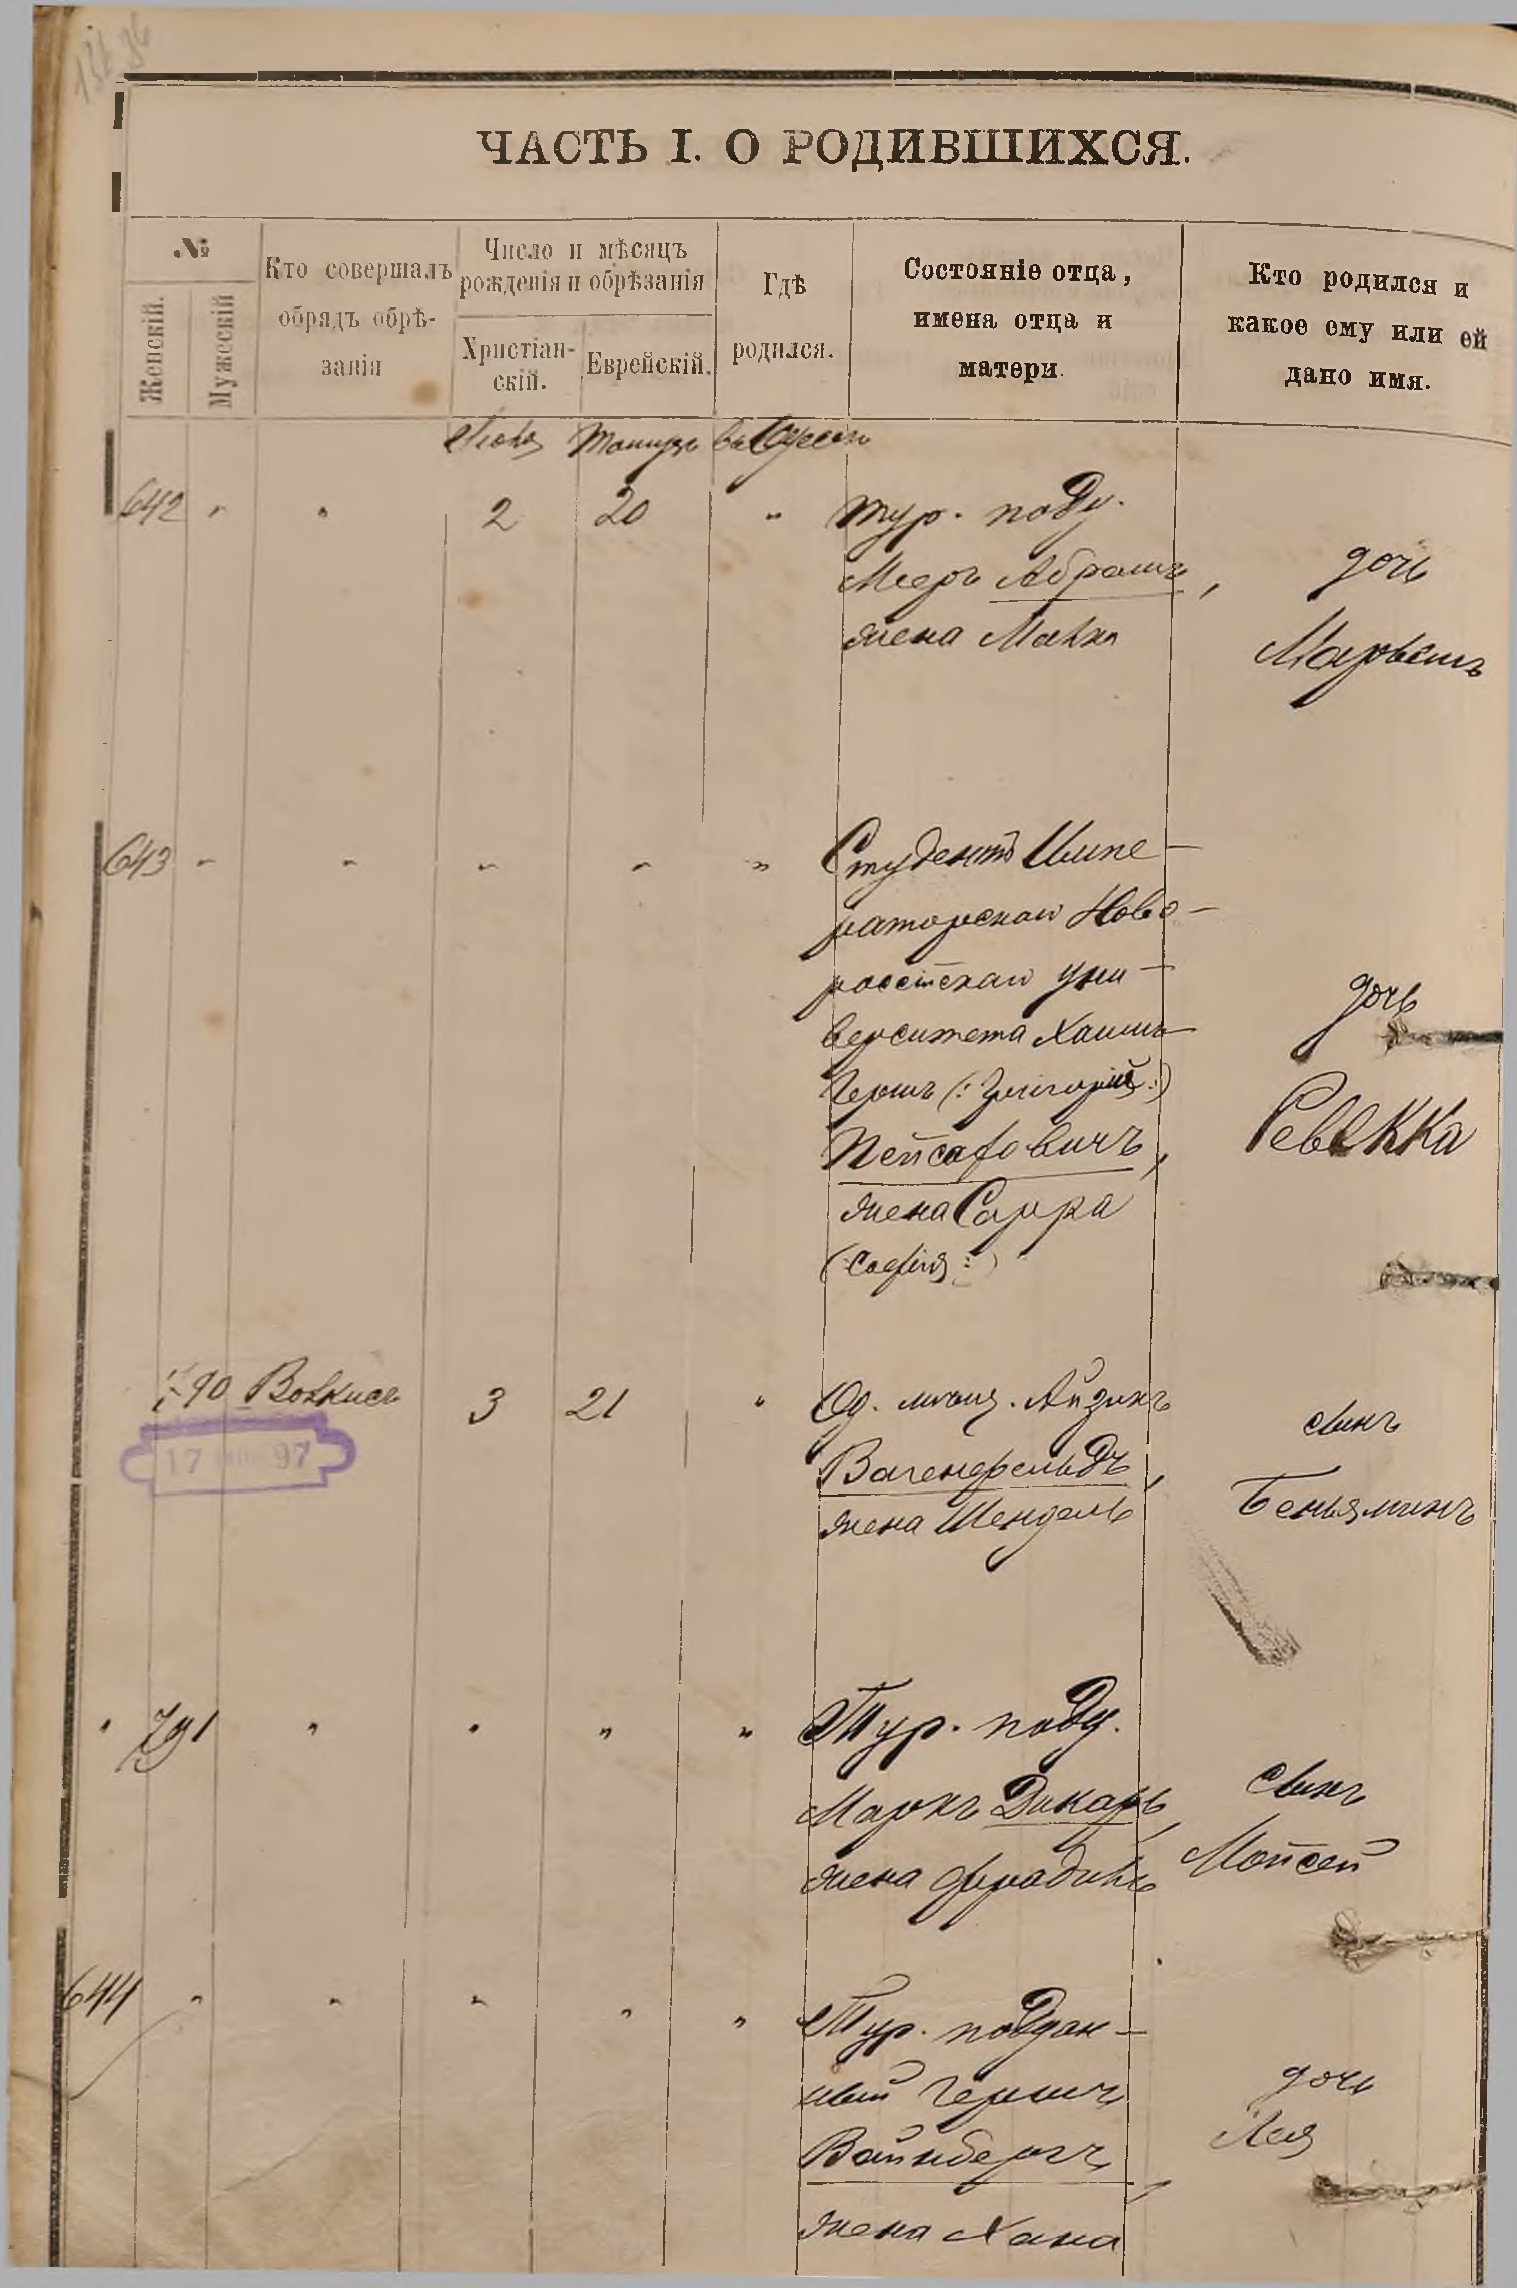 ЧАСТЬ I. О РОДИВШИХСЯ.
№
Женскій.
Мужескій
Кто совершалъ
обрядъ обрѣ-
занія
Число и мѣсяцъ
рожденія и обрѣзанія
Христіан-
скій.
Еврейскій.
Гдѣ
родился.
Состояніе отца,
имена отца и
матери.
Кто родился и
какое ему или ей
дано имя.
Іюля Тамузъ въ Одессѣ
642 " " 2 20 " Тур. подд.
Мееръ Абрамъ,
жена Малка
дочь
643 " " " " " Студентъ Импе-
раторскаго Ново-
россійскаго уни-
верситета Хаимъ
Гершъ (: Григорій :)
Пейсаховичъ,
жена Сарра
(: Софія :)
дочь
Ревекка
790 3 21 " Од. мѣщ. Айзикъ
Вагенфельдъ,
жена Шендель
сынъ
Беньяминъ
17 97
" 791 " " " " Тур. подд.
Маркъ Дикарь,
жена Фрадель
сынъ
Мойсей
644 " " " " " Тур. поддан-
ный Гершъ
Вайнбергъ,
жена Хана
дочь
Лея